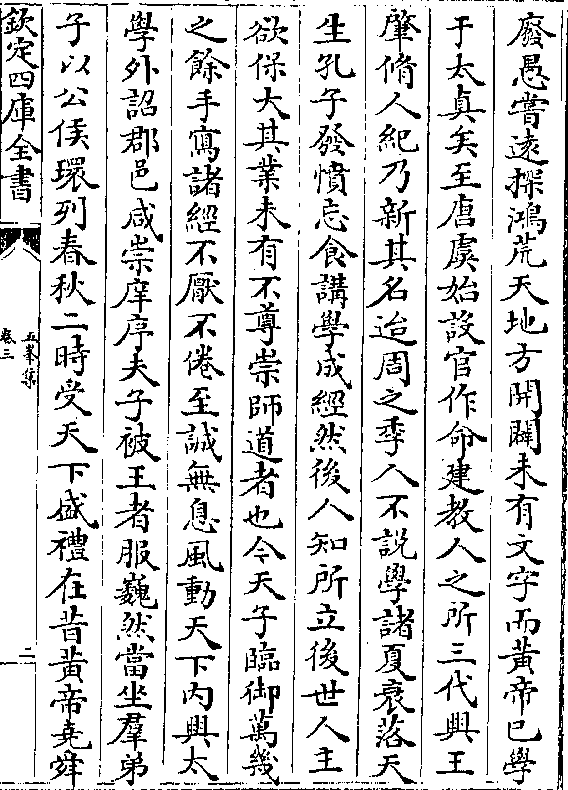 廢愚嘗逺探鴻荒天地方開闢未有文字而黃帝已學
于太真矣至唐虞始設官作命建教人之所三代興王
肇脩人紀乃新其名迨周之季人不説學諸夏衰落天
生孔子發憤忘食講學成經然後人知所立後世人主
欲保大其業未有不尊崇師道者也今天子臨御萬幾
之餘手寫諸經不厭不倦至誠無息風動天下内興太
學外詔郡邑咸崇庠序夫子被王者服巍然當坐羣弟
子以公侯環列春秋二時受天下盛禮在昔黃帝堯舜
欽定四庫全書
五峯集
卷三
二